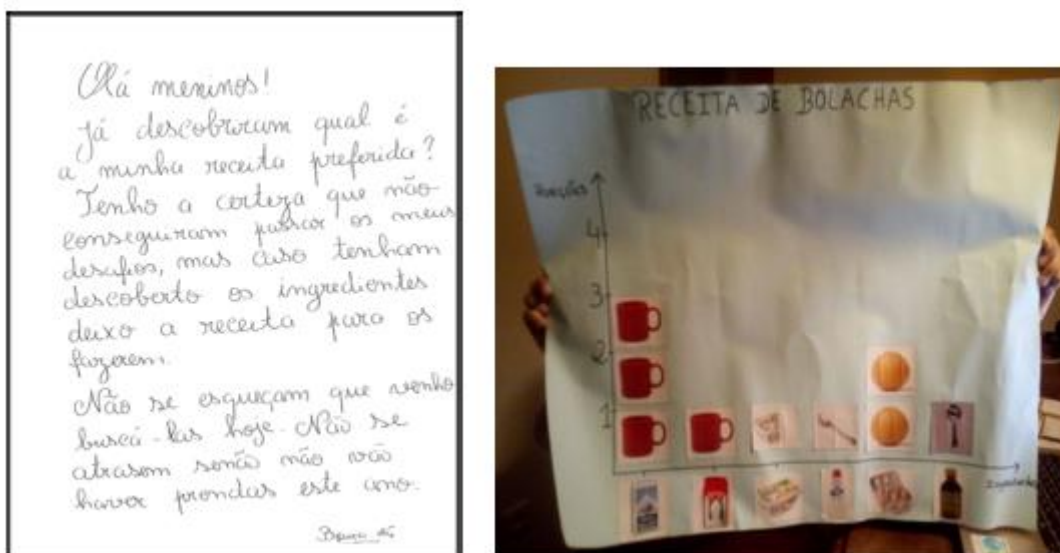 Olá meninos!
Já descobriram qual é
a minha receita preferida?
Tenho a certeza que não
conseguiram passar os meus
desafios, mas caso tenham
descoberto os ingredientes
deixo a receita para os
fazerem.
Não se esqueçam que venho
buscá-las hoje. Não se
atrasem senão não vão
haver prendas este ano.
RECEITA DE BOLACHAS
4
3
2
1